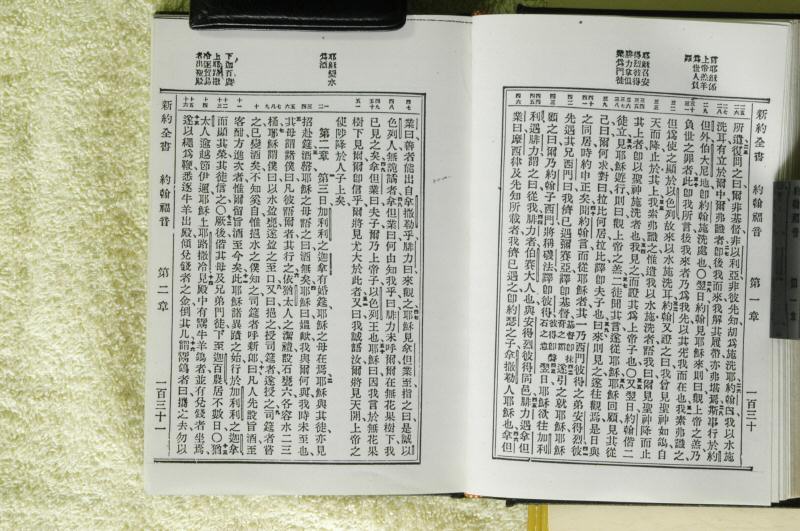 新約全書 約翰福音 第一章 一百三十
所遣、復問之曰、爾非基督、非以利亞、非彼先知、胡爲施洗耶、約翰曰、我以水施
洗耳、有立於爾中、爾弗識者、卽後我而來、我解其履帶亦弗堪焉、斯事行於約
但外伯大尼、卽約翰施洗處也、〇翌日約翰見耶穌來、則曰、觀上帝之羔、乃
負世之罪者、此卽我所言後我來者、乃爲我先、以其先我而在也、我素弗識之、
但爲使之顯於以色列、故來以水施洗耳、約翰又證之曰、我曾見聖神如鴿自
天而降、止於其上、我素弗識之、惟遣我以水施洗者語我曰、爾見聖神降而止
其上者、卽以聖神施洗者也、我見之而證其爲上帝子也、〇又翌日約翰偕二
徒立、見耶穌遊行、則曰、觀上帝之羔、二徒聞其言、遂從耶穌、耶穌回顧見其從
己、曰、爾何求、對曰、拉比何居、拉比譯卽夫子也、曰、來則見之、遂往觀焉、是日與
之同居、時約申正矣、聞約翰言而從耶穌者、其一乃西門彼得之弟安得烈、彼
先遇其兄西門、曰、我儕已遇彌賽亞、譯卽基督、遂引之就耶穌、耶穌
顧之曰、爾乃約翰子西門、將稱磯法、譯卽彼得、翌日耶穌欲往加利
利、遇腓力、謂之曰、從我、腓力者、伯賽大人也、與安得烈彼得同邑、腓力遇拿但
業曰、摩西律及先知所載者、我儕已遇之、卽約瑟之子拿撒勒人耶穌也、拿但
業曰、善者能出自拿撒勒乎、腓力曰、來觀之、耶穌見拿但業至、指之曰、是誠以
色列人、無詭譎者、拿但業曰、何由知我乎、曰、腓力未呼爾、爾在無花果樹下、我
已見之矣、拿但業曰、夫子、爾乃上帝子、以色列王也、耶穌曰、因我言於無花果
樹下見爾、爾卽信乎、爾將見尤大於此者、又曰、我誠語汝、爾將見天開、上帝之
使陟降於人子上矣、
第二章 第三日加利利之迦拿有婚筵、耶穌之母在焉、耶穌與其徒亦見
招赴筵、酒罄、耶穌之母語之曰、酒無矣、耶穌曰、媼歟、我與爾何與、我時未至也、
其母謂諸僕曰、凡彼語爾者、其行之、依猶太人之潔禮、設石甕六、各容水二三
桶、耶穌謂僕曰、以水盈甕、遂盈之至口、又曰、挹之授司筵者、遂授之、司筵者嘗
之、已變酒矣、不知奚自、惟挹水之僕知之、司筵者呼新郎曰、凡人先設旨酒、至
客酣、方進次者、惟爾留旨酒至今矣、此耶穌諸異蹟之始、行於加利利之迦拿、
而顯其榮、其徒信之、〇厥後偕其母及兄弟門徒、下至迦百農、居不數日、〇猶
太人逾越節伊邇、耶穌上耶路撒冷、見殿中有鬻牛羊鴿者、並有兌錢者坐焉、
遂以繩爲鞭、悉逐牛羊出殿、傾兌錢者之金、倒其几、謂鬻鴿者曰、攜之去、勿以
新約全書 約翰福音 第二章 一百三十一